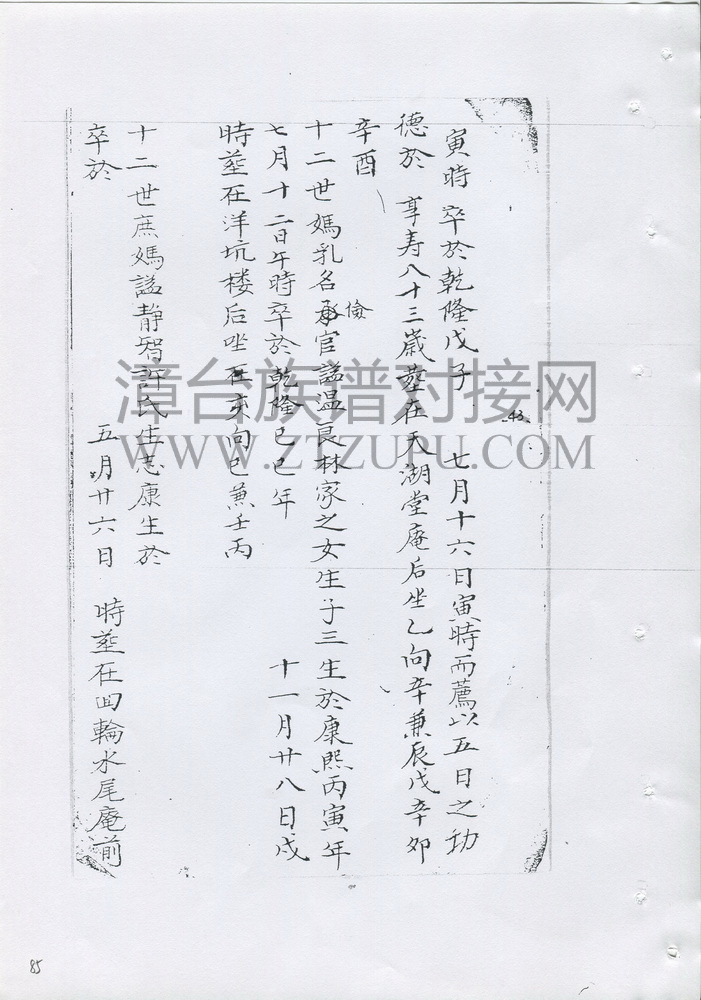 寅時卒於乾隆戊子 七月十六日寅時而薦以五日之功
德於 享寿八十三歲葬在天湖堂庵后坐乙向辛兼辰戌辛卯
辛酉
十二世媽乳名承官謚温良林家之女生子三生於康熙丙寅年
儉
七月十二日午時卒於乾隆己巳年 十一月廿八日戌
時葬在洋坑楼后坐亥向巳兼壬丙
十二世庶媽謚静智許氏生志康生於
卒於 五月廿六日 時葬在四輪水尾庵前
43
漳台族谱对接网
WWW.ZTZUPU.COM
85